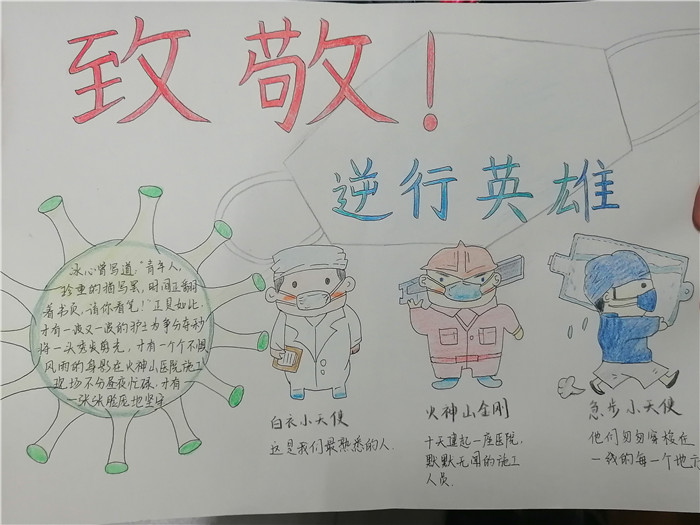 致敬！
逆行英雄
冰心曾写道"青年人，
珍重的描写罢，时间正翻
着书页，请你着笔！"正是如此，
才有一波又一波的护士为争分夺秒
将一头秀发剪光，才有一个个不惧
风雨的身影在火神山医院施工
现场不分昼夜忙碌，才有
一张张脸庞地坚守
白衣小天使
这是我们最熟悉的人.
火神山金刚
十天建起一座医院，
默默无闻的施工
人员.
急步小天使
他们匆匆穿梭在
一线的每一个地